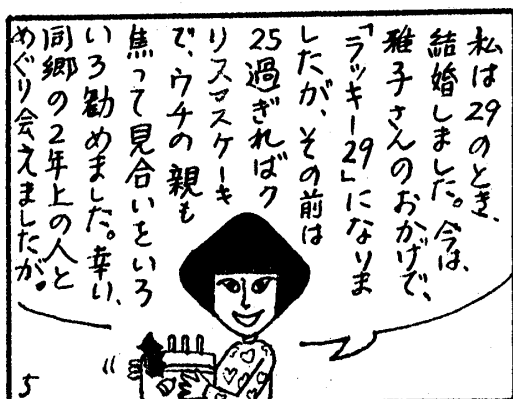 私は29のとき、
結婚しました。今は、
雅子さんのおかげで、
「ラッキー29」になりま
したが、その前は
25過ぎればク
リスマスケーキ
で、ウチの親も
焦って見合いをいろ
いろ勧めました。幸い、
同郷の2年上の人と
めぐり会えましたが。
5